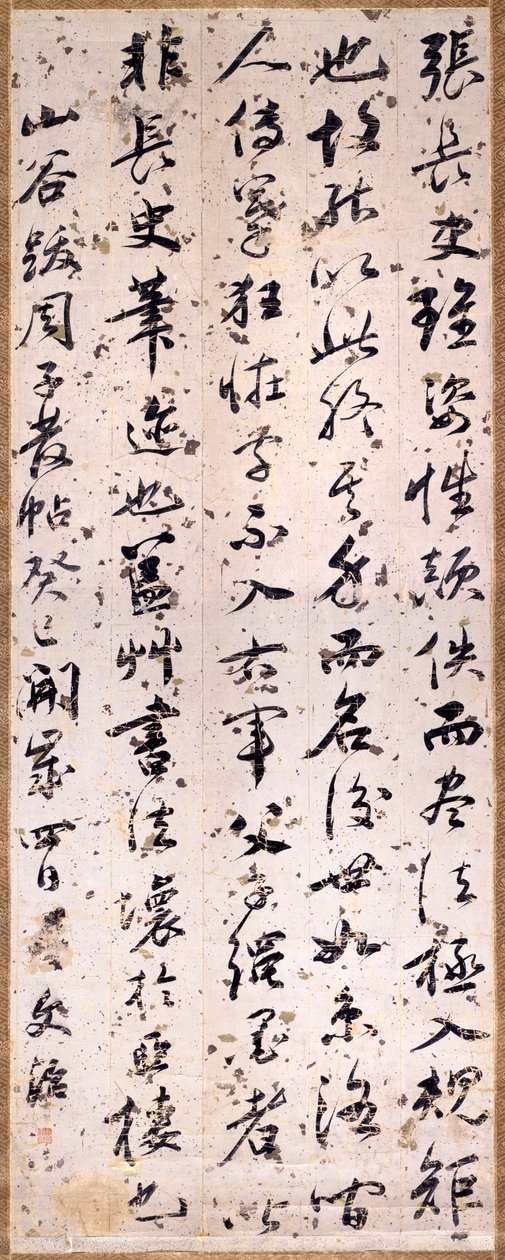 張長史雖姿性顛佚而書法極入規矩
也故能以此終其身而名後世如京洛間
人傳摹狂怪字不入右軍父子繩墨者皆
非長史筆迹也蓋艸書法壞於亞棲也
山谷跋周子發帖癸巳開歲四日文